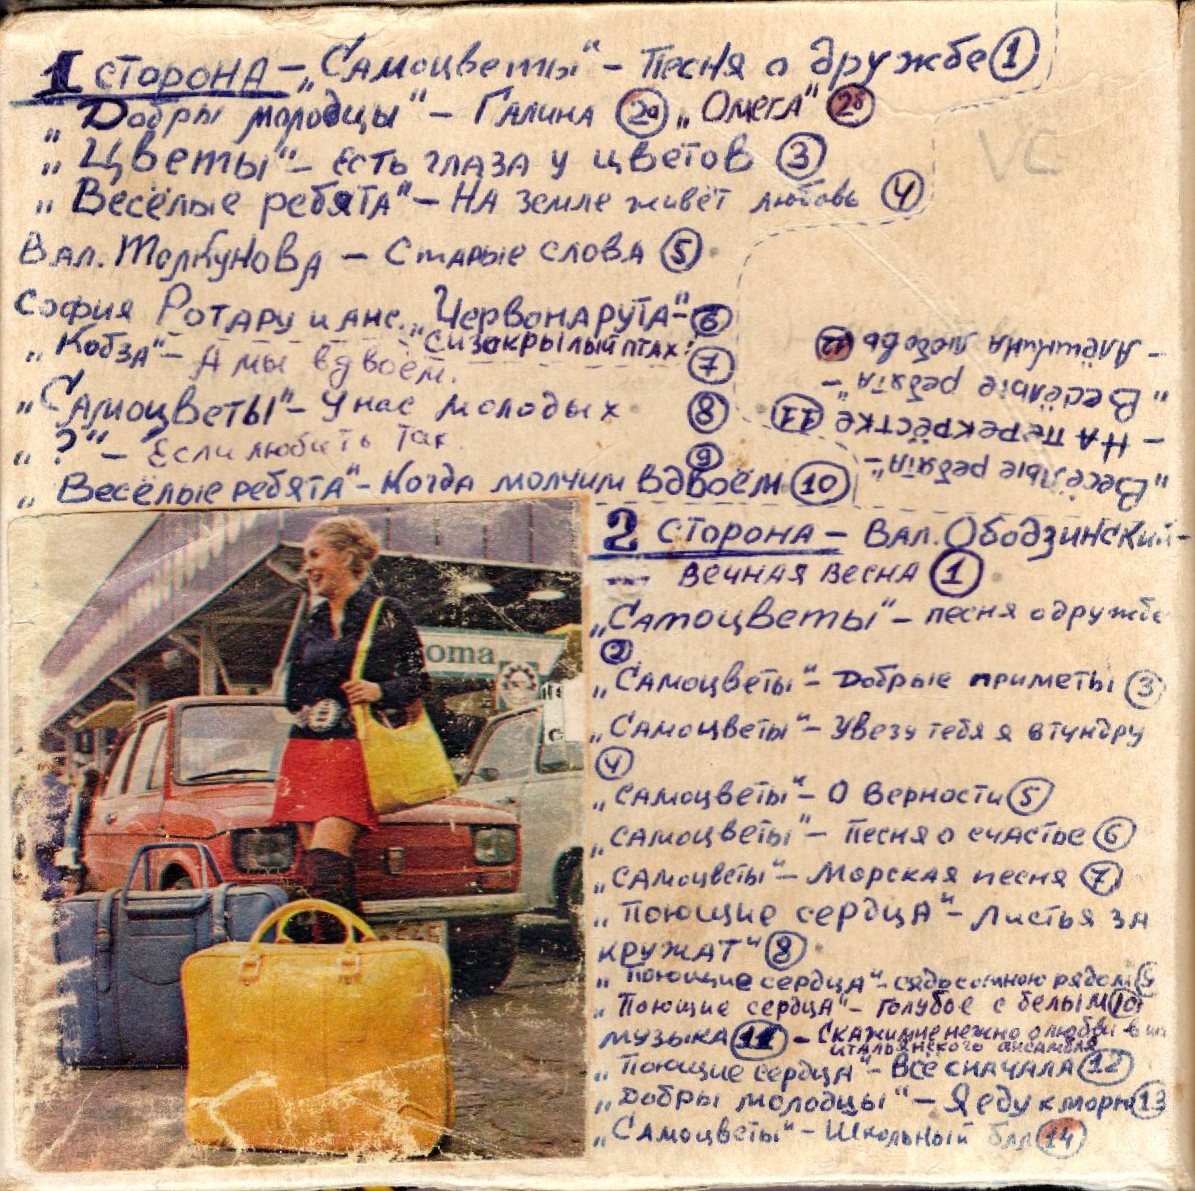 1 сторона – „Самоцветы“ – Песня о дружбе 1
„Добры молодцы“ – Галина 2а „Омега“ 2б
„Цветы“ – Есть глаза у цветов 3
„Весёлые ребята“ – На земле живёт любовь 4
Вал. Толкунова – Старые слова 5
София Ротару и анс. „Червона рута“ – 6
„Сизокрылый птах“
„Кобза“ – А мы вдвоём. 7
„Самоцветы“ – У нас молодых 8
„?“ – Если любить так 9
„Весёлые ребята“ – Когда молчим вдвоём 10
"Весёлые ребята" –
– На перекрёстке 11
"Весёлые ребята" –
– Алёшкина любовь 12
VC
2 сторона – Вал. Ободзинский –
вечная весна 1
„Самоцветы“ – песня о дружбе
2
„Самоцветы“ – Добрые приметы 3
„Самоцветы“ – Увезу тебя я в тундру
4
„Самоцветы“ – О верности 5
„Самоцветы“ – Песня о счастье 6
„Самоцветы“ – Морская песня 7
„Поющие сердца“ – Листья за
кружат“ 8
„Поющие сердца“ – сядь со мною рядом 9
„Поющие сердца“ – Голубое с белым 10
музыка 11 – Скажи мне нежно о любви
итальянского ансамбля
„Поющие сердца“ – Всё сначала 12
„Добры молодцы“ – Я еду к морю 13
„Самоцветы“ – Школьный бал 14
oma